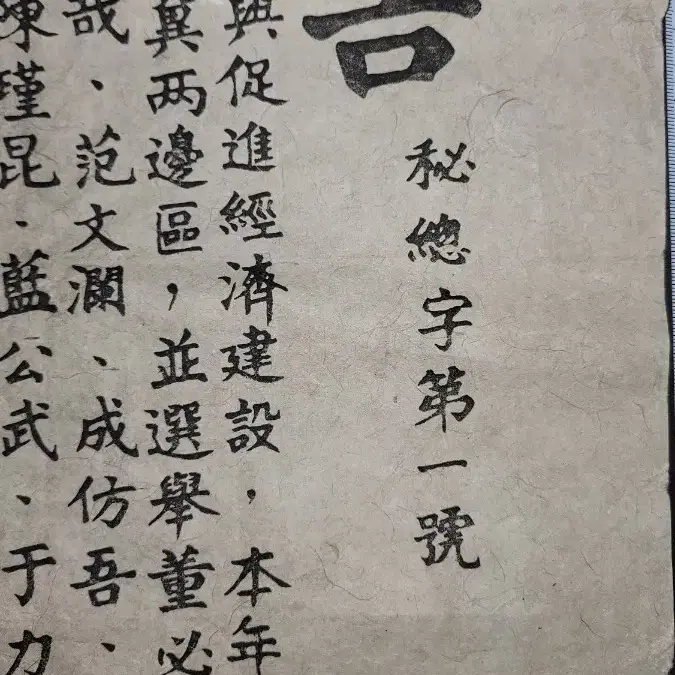 秘總字第一號
與促進經濟建設，本年
冀两邊區，並選舉董必
哉、范文瀾、成仿吾、
陳瑾昆、藍公武、于力